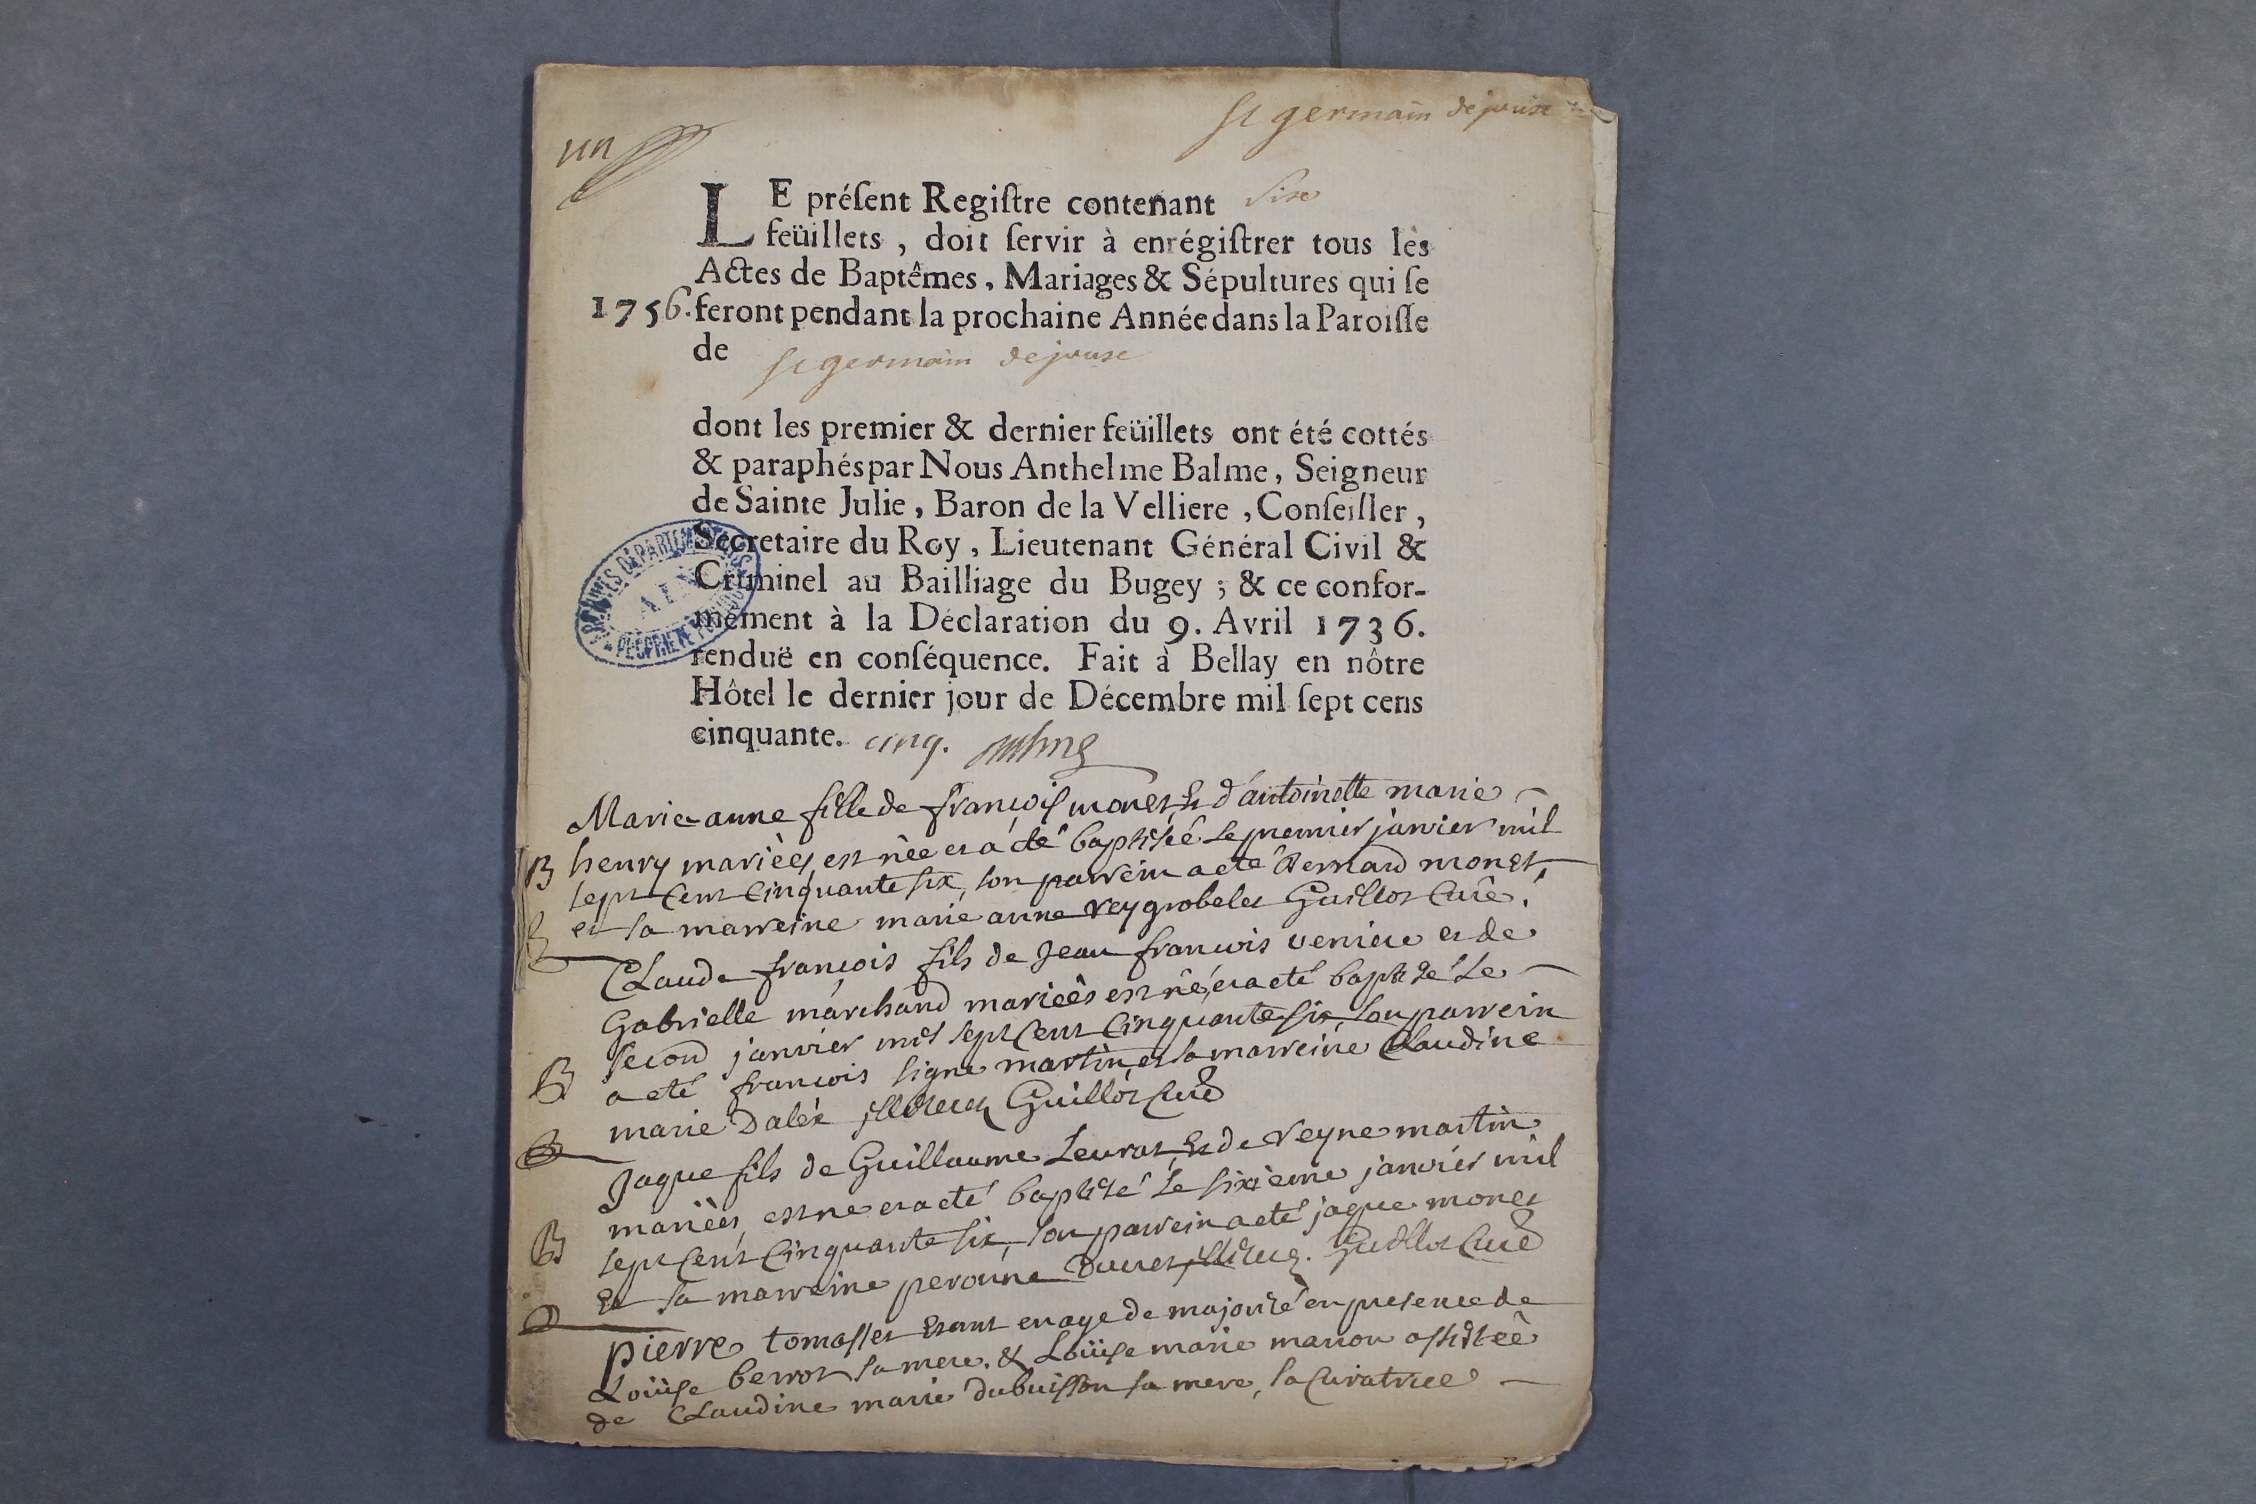 un
st germain de joux
LE présent Registre contenant six
feüillets, doit servir à enrégistrer tous les
Actes de Baptêmes, Mariages & Sépultures qui se
1756. feront pendant la prochaine Année dans la Paroisse
de st germain de joux
dont les premier & dernier feüillets ont été cottés
& paraphés par Nous Anthelme Balme, Seigneur
de Sainte Julie, Baron de la Velliere, Conseiller,
Secretaire du Roy, Lieutenant Général Civil &
Criminel au Bailliage du Bugey ; & ce confor-
mément à la Déclaration du 9. Avril 1736.
renduë en conséquence. Fait à Bellay en nôtre
Hôtel le dernier jour de Décembre mil sept cens
cinquante. cinq. Balme
ARCHIVES DÉPARTEMENTALES
AIN
PROPRIÉTÉ PUBLIQUE
Marie anne fille de françois monet, et d'antoinette marie
B henry mariées, est née et a été baptisée le premier janvier mil
sept cent cinquante six, son parrein a eté Bernard monet,
et sa marreine marie anne reygrobelet Guillot Curé.
Claude françois fils de Jean francois et de
Gabrielle marchand mariés est né, et a eté baptisé le
second janvier mil sept cent cinquante six, son parrein
B a eté francois signe martin, et sa marreine Claudine
marie Dalex Guillot Curé
Jaque fils de Guillaume Levrat, et de reyne martin
mariées, est ne et a eté baptisé le sixieme janvier mil
B sept cent cinquante six, son parrein a eté jaque monet
et sa marreine peronne Ducret Guillot Curé
pierre tomasset etant en age de majorité en presence de
Loüise berrot sa mere. & Loüise marie marion assistée
de Claudine marie dubuisson sa mere, sa Curatrice